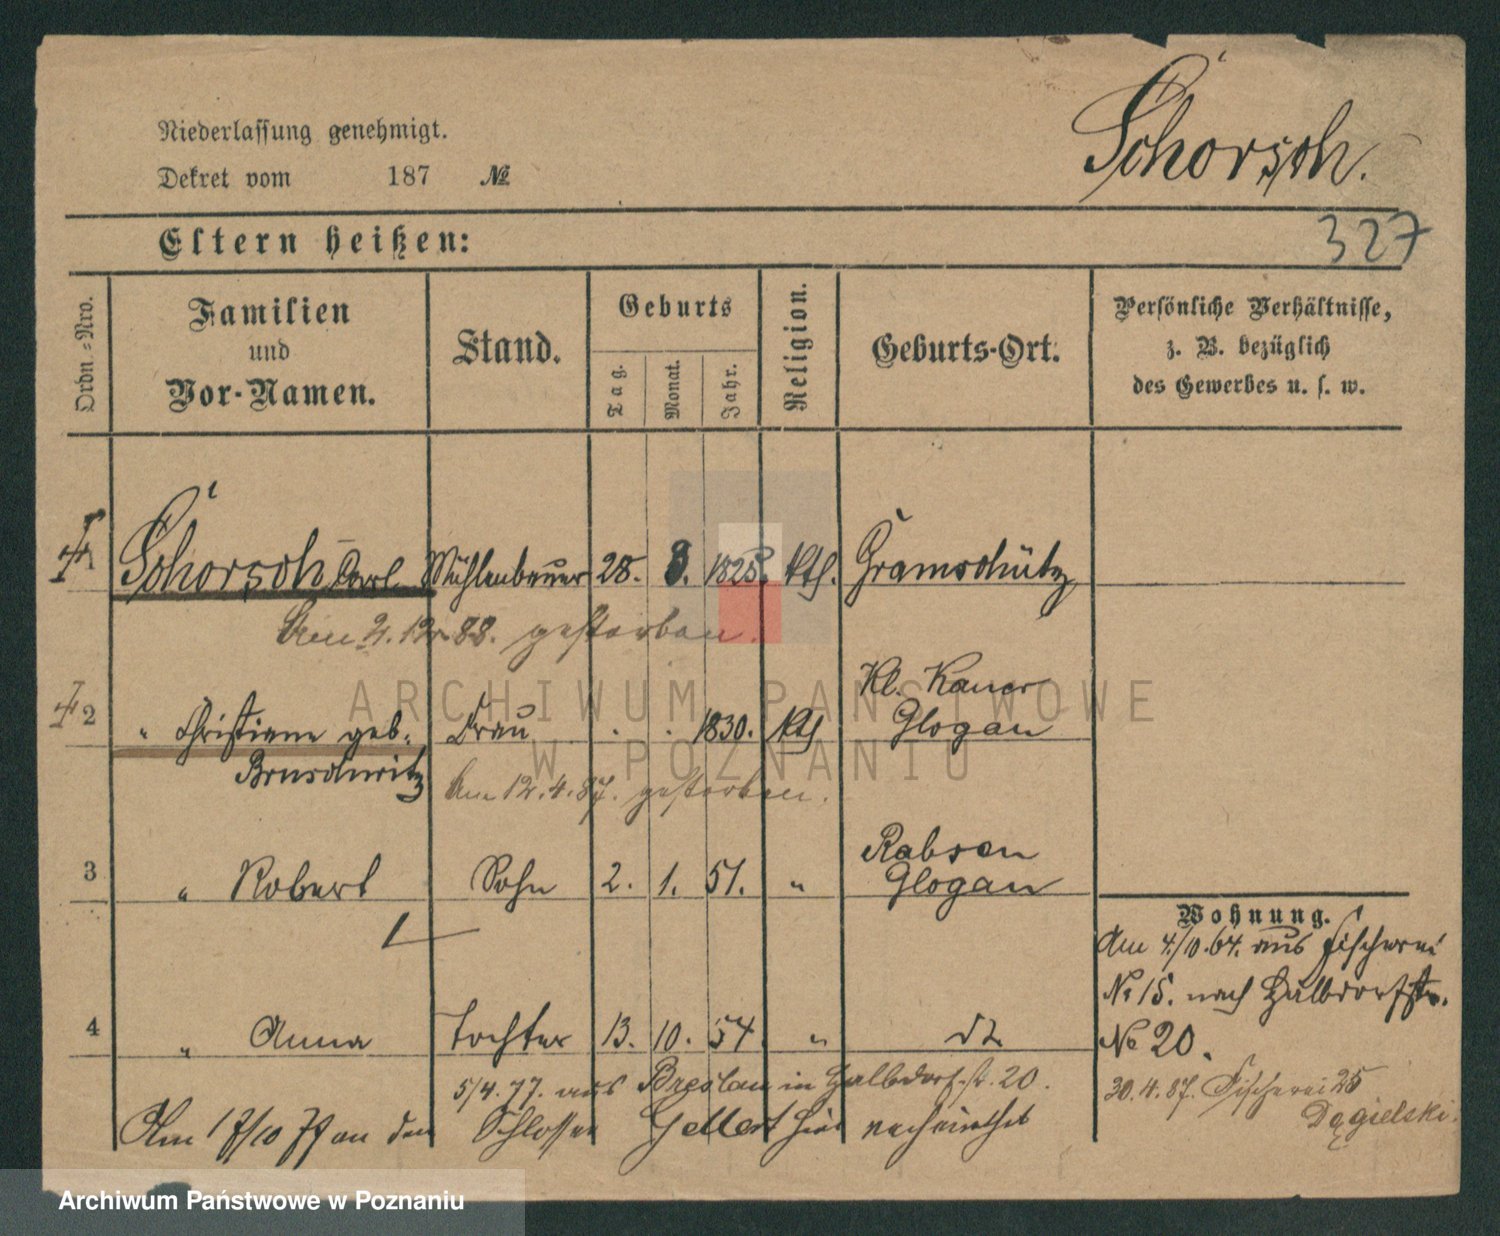 Niederlassung genehmigt.
Schorsch.
Dekret vom 187 №
Eltern heißen:
327
Ordn.-Nro.
Familien und Vor-Namen.
Stand.
Geburts
Tag.
Monat.
Jahr.
Religion.
Geburts-Ort.
Persönliche Verhältnisse,
z. B. bezüglich
des Gewerbes u. s. w.
1 Schorsch Carl Mühlenbauer 28. 8. 1825. kth. Gramschütz
2.12.88. gestorben.
Kl. Kauer
2 " Christiane geb. Frau . . 1830. kth Glogau
Bruschwitz
12.4.87. gestorben.
Rabsen
3 " Robert Sohn 2. 1. 51. " Glogau
Wohnung.
Am 4/10.64. aus Fischerei
No 15. nach Halbdorfstr.
No 20.
4 " Anna Tochter 13. 10. 54. " dt
5/4.77. aus Breslau in Halbdorfstr. 20.
30.4.87. Fischerei 25
Dągielski.
Am 17/10 77 an den Schlosser Gellert hier verheirathet
ARCHIWUM PAŃSTWOWE
W POZNANIU
Archiwum Państwowe w Poznaniu